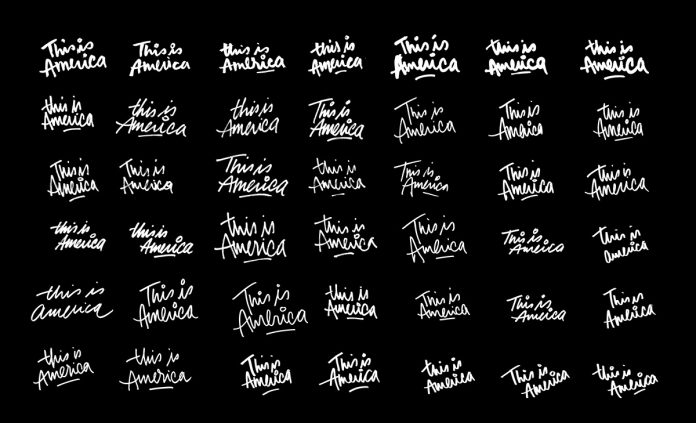 This is
America
This is
America
this is
America
this is
America
This is
America
this is
America
this is
America
this is
America
this is
America
this is
America
This is
America
This is
America
This is
America
this is
America
This is
America
This is
America
This is
America
this is
America
This is
America
This is
America
this is
America
this is
America
this is
America
this is
America
this is
America
This is
America
This is
America
this is
america
this is
america
This is
America
This is
America
this is
America
This is
America
This is
America
This is
America
this is
America
this is
America
This is
America
This is
America
this is
America
This is
America
this is
America